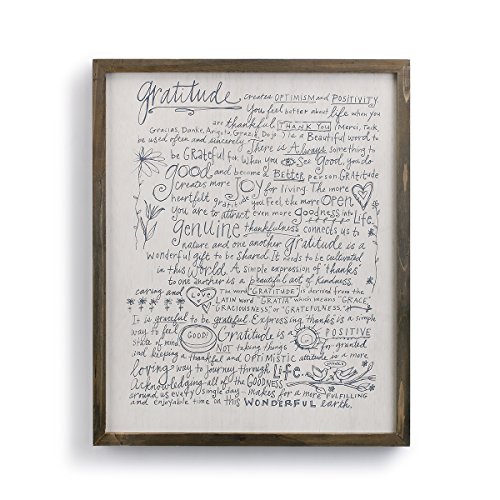 gratitude creates OPTIMISM and POSITIVITY
You feel better about life when you
are thankful. THANK YOU (Merci, Tack,
Gracias, Danke, Arigato, Grazie, Dojo.) is a Beautiful word to
be used often and sincerely. There is Always something to
be GRATEFUL for. When you See Good, you do
good and become a Better person. GRATITUDE
creates more Joy for living. The more
heartfelt gratitude you Feel the more Open
you are to attract even more Goodness into Life.
Genuine thankfulness connects us to
nature and one another. Gratitude is a
wonderful gift to be shared. It needs to be cultivated
in this World. A simple expression of "thanks"
to one another is a beautiful act of kindness,
caring and Love. The word GRATITUDE is derived from the
LATIN word "GRATIA" which means "GRACE,
GRACIOUSNESS, or GRATEFULNESS."
It is grateful to be grateful. Expressing thanks is a simple
way to feel GOOD! Gratitude is a POSITIVE
state of mind NOT taking things for granted
and keeping a thankful and OPTIMISTIC attitude is a more
loving way to journey through Life.
Acknowledging all of the GOODNESS
around us every single day makes for a more FULFILLING
and enjoyable time in this WONDERFUL earth.